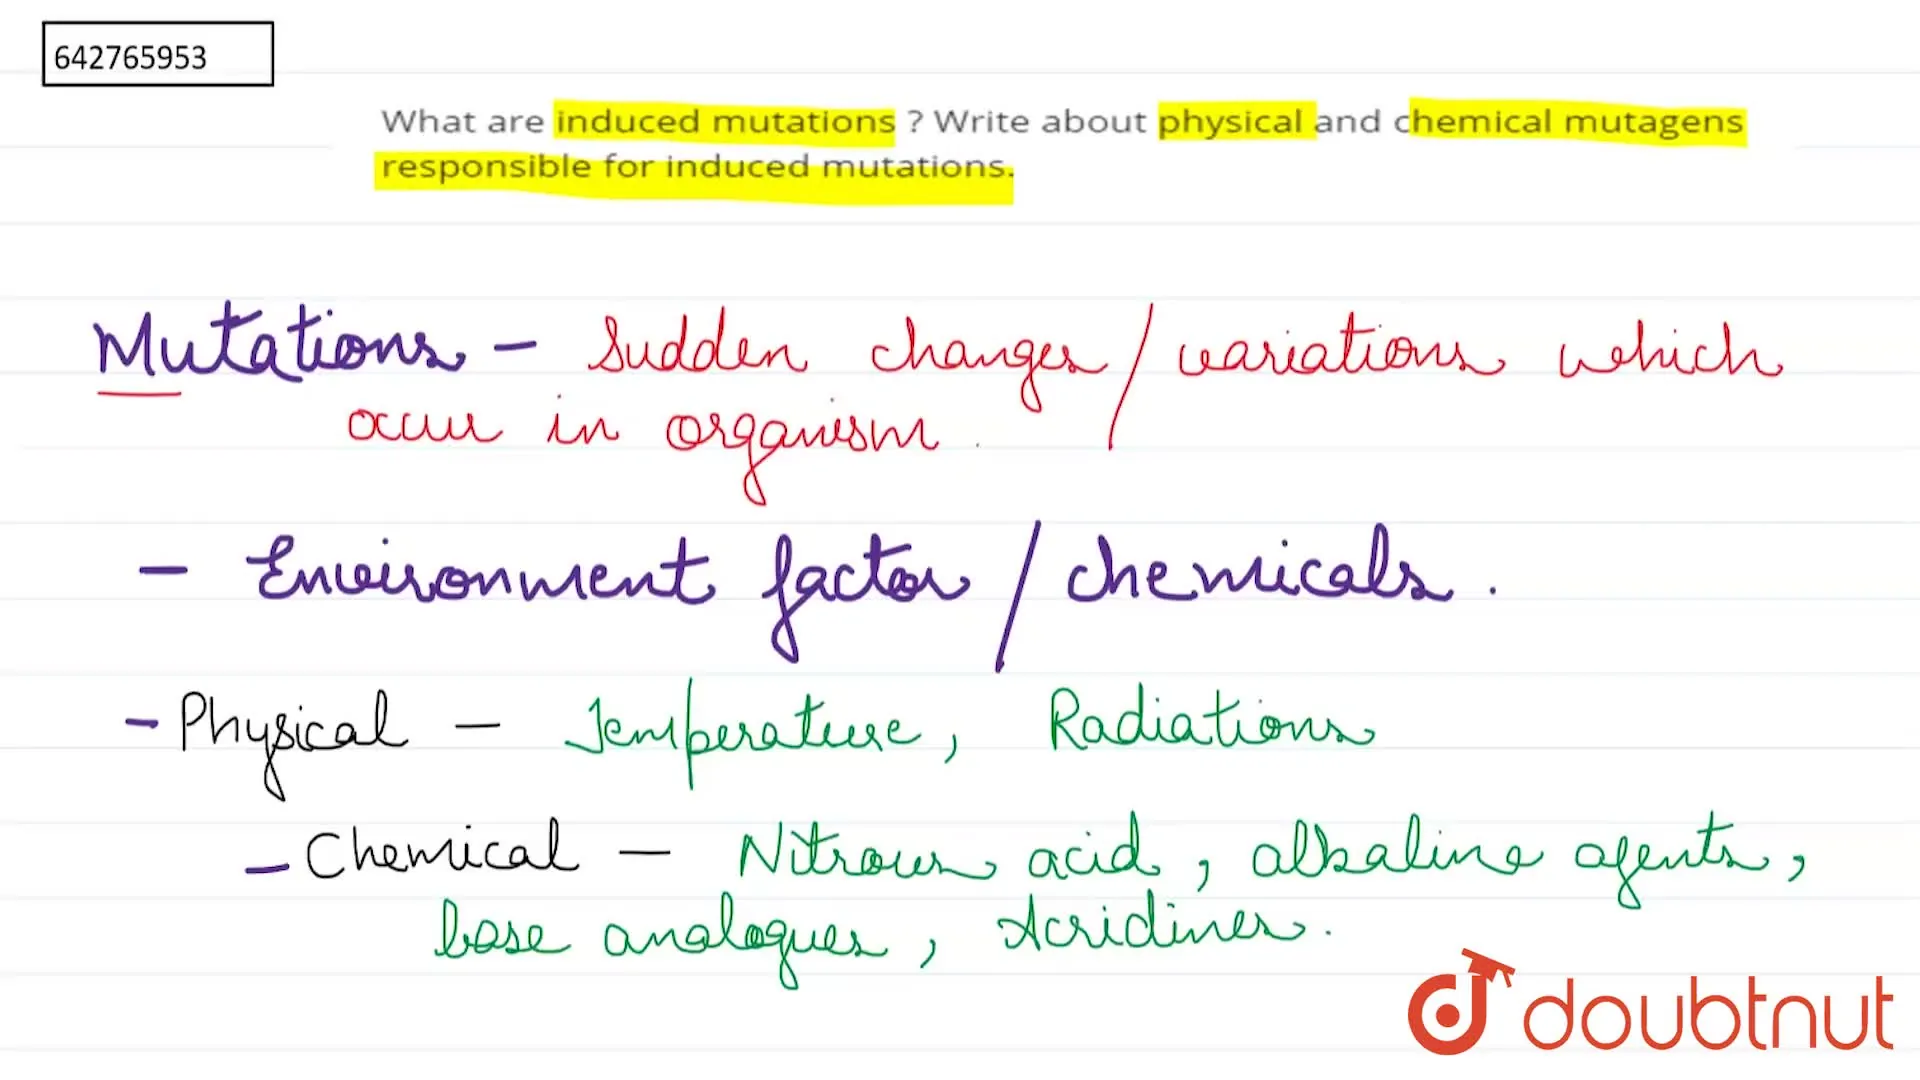 642765953
What are induced mutations ? Write about physical and chemical mutagens
responsible for induced mutations.
Mutations - Sudden changes / variations which
occur in organism.
- Environment factor / chemicals.
- Physical - Temperature, Radiations
- Chemical - Nitrous acid, alkaline agents,
base analogues, Acridines.
doubtnut